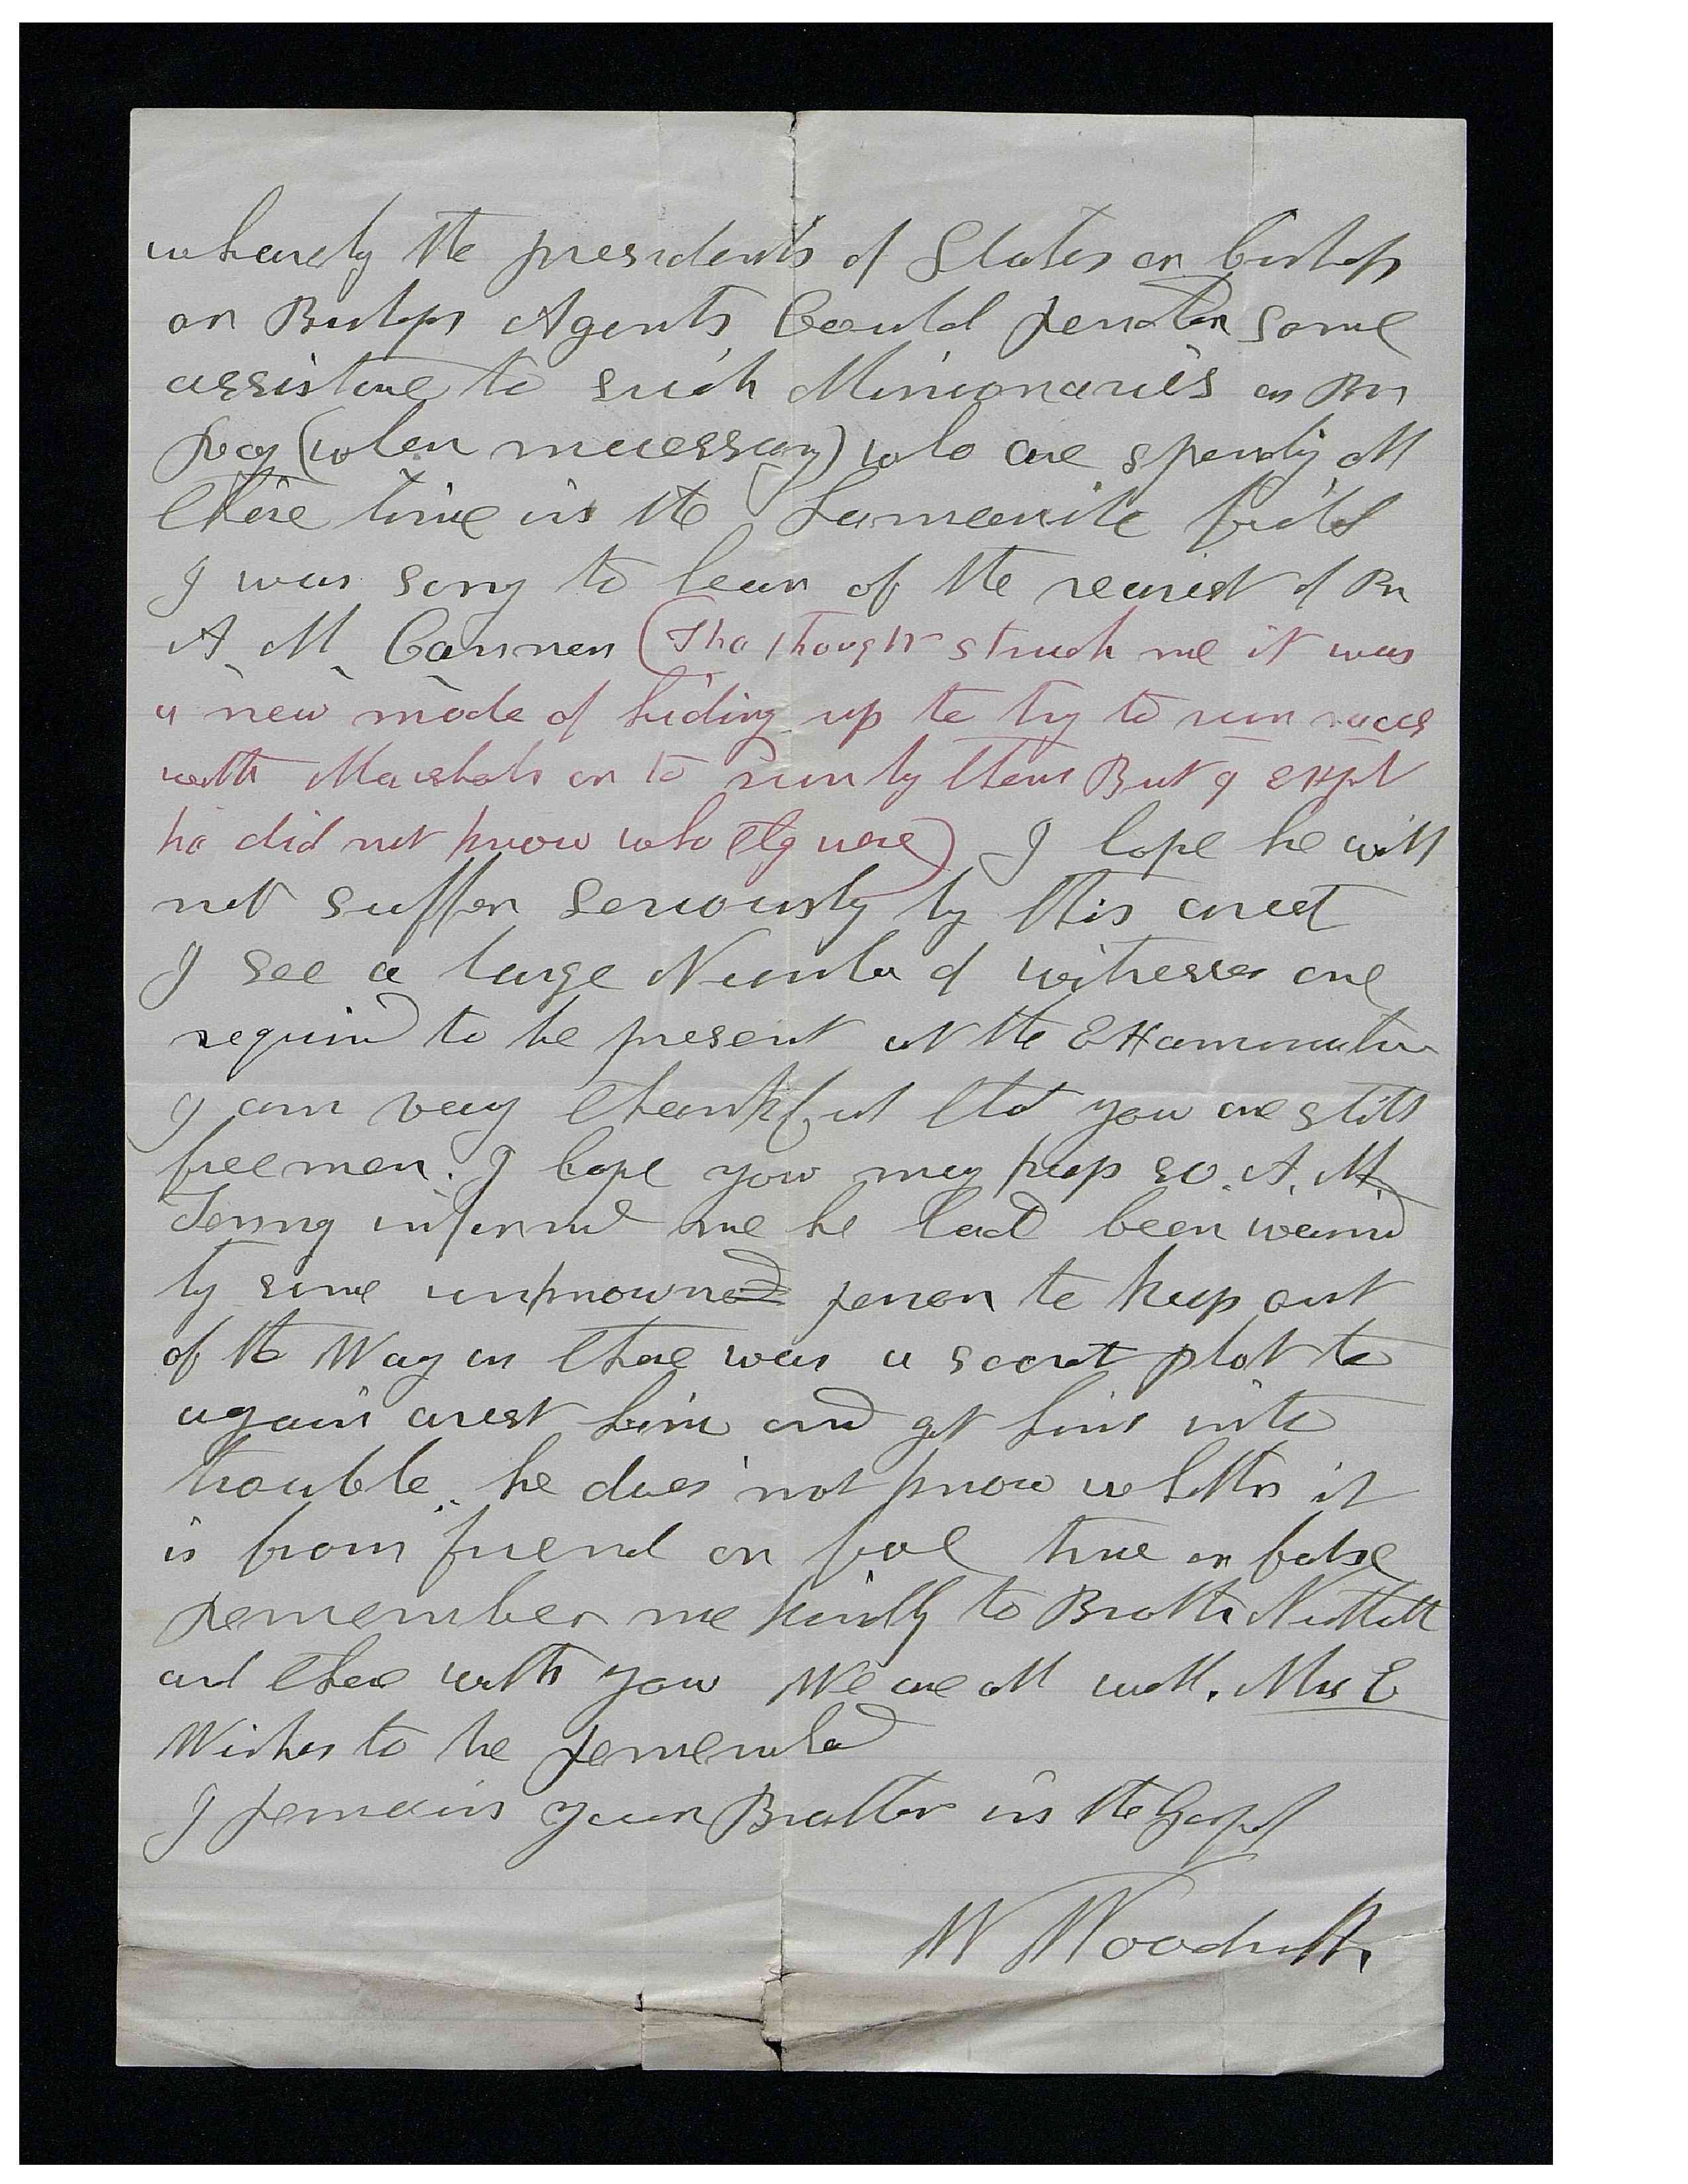 whareby the presidents of Stakes or bishops
or Bishops Agents Could render some
assistance to such Missionaries as Br
(when neccessary) who are spending all
there time in the Lamanite field
I was sorry to hear of the arrest of Br
A. M. Cannon (The thought struck me it was
a new mode of hiding up to try to run races
with Marshals or to run by them But I Expt
he did not know who they were) I hope he will
not suffer seriously by this arrest
I see a large Number of witnesses are
required to be present at the Examination
I am very thankful that you are still
free men. I hope you may keep so. A. M.
informed me he had been warned
by some unknowned person to keep out
of the Way as there was a secret plot to
again arest him and get him into
trouble. he does not know whether it
is from friend or foe true or false
remember me kindly to Brother Nuttall
and those with you We are all well. Mrs E
Wishes to be remembered
I remain your Brother in the Gospel
W Woodruff